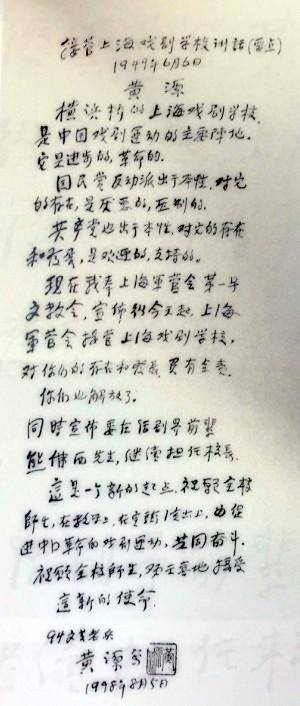 接管上海戏剧学校训话(要点)
1949年6月6日
黄源
横浜桥的上海戏剧学校,
是中国戏剧运动的主要阵地。
它是进步的,革命的。
国民党反动派出于本性,对它
的存在,是厌恶的,压制的。
共产党也出于本性,对它的存在
和发展,是欢迎的,支持的。
现在我奉上海军管会第一号
文教令,宣佈从今天起,上海
军管会接管上海戏剧学校,
对你们的存在和发展,负有全责。
你们也解放了。
同时宣佈委任话剧界前辈
熊佛西先生,继续担任校长。
这是一个新的起点,祝愿全校
师生,在教学上,在实践演出上,为促
进中国革命的戏剧运动,共同奋斗。
祝愿全校师生,欣喜地接受
这新的使命。
94文艺老兵
黄源书
1998年8月5日